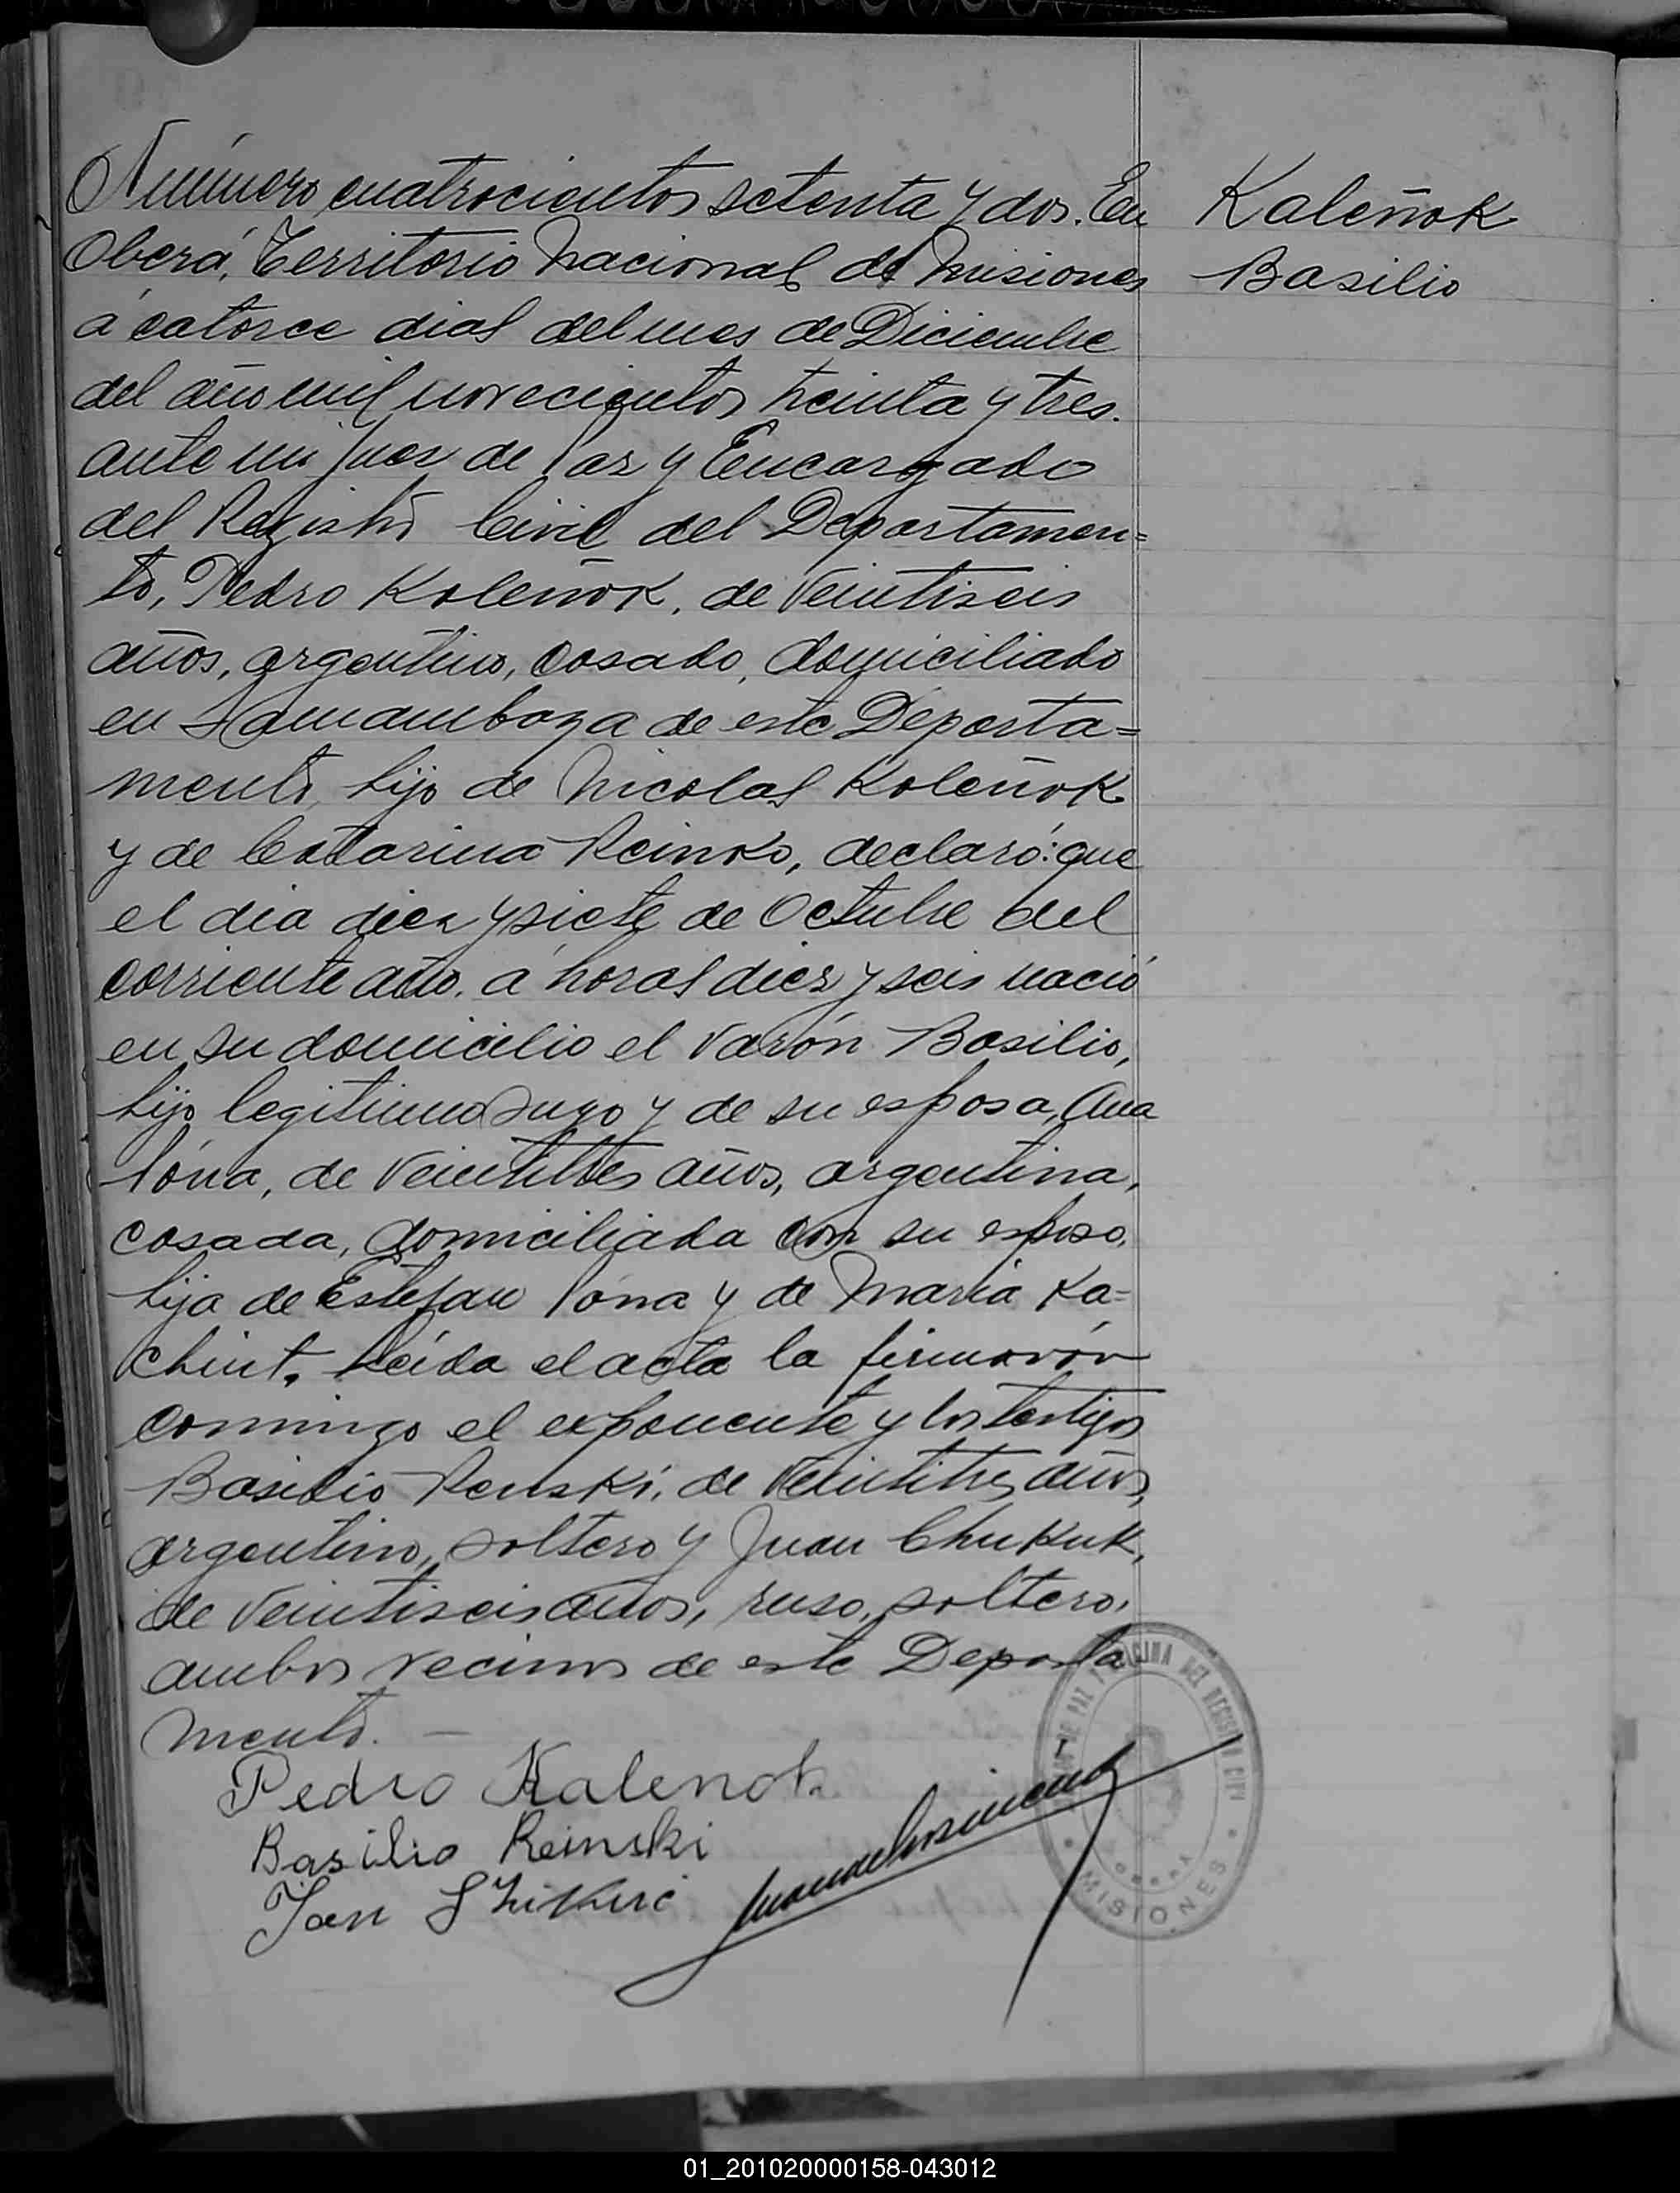 Número cuatrocientos setenta y dos. En
Oberá, Territorio Nacional de Misiones
a catorce dias del mes de Diciembre
del año mil novecientos treinta y tres.
ante mi Juez de Paz y Encargado
del Registro Civil del Departamen=
to, Pedro Koleñok, de veintiseis
años, argentino, casado, domiciliado
en de este Departa=
mento, hijo de Nicolas Koleñok
y de Catarina Reinko, declaró: que
el dia diez y siete de Octubre del
corriente año, a horas diez y seis nació
en su domicilio el varón Basilio,
hijo legitimo suyo y de su esposa, Ana
de veintitres años, argentina,
casada, domiciliada con su esposo,
hija de Estefan y de Maria Ka=
chint. Leida el acta la firmarón
conmigo el exponente y los testigos
Basilio Renski, de veintitres años,
argentino, soltero y Juan Chukuk,
de veintiseis años, ruso, soltero,
ambos vecinos de este Departa
mento. —
Pedro Kalenok
Basilio Reinski
Jan
Kaleñok
Basilio
DE PAZ Y OFICINA DEL REGISTRO CIVIL
OBERA
MISIONES
01_201020000158-043012